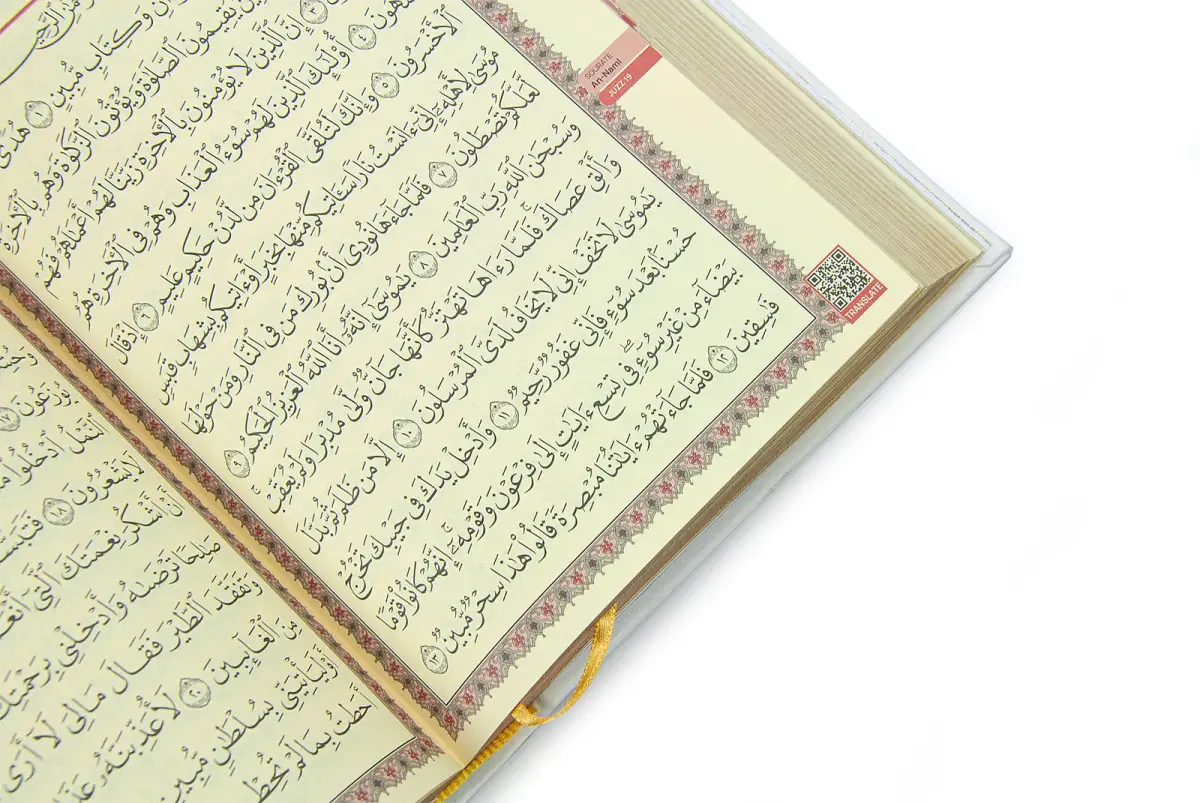 الرَّحِيمِ
وَكِتَابٍ مُّبِينٍ ١ هُدًى
يُقِيمُونَ ٱلصَّلَوٰةَ وَيُؤْتُونَ ٱلزَّكَوٰةَ وَهُم بِٱلْأَخِرَةِ
إِنَّ ٱلَّذِينَ لَا يُؤْمِنُونَ بِٱلْأَخِرَةِ زَيَّنَّا لَهُمْ أَعْمَٰلَهُمْ فَهُمْ
يَعْمَهُونَ ٤ أُو۟لَٰٓئِكَ ٱلَّذِينَ لَهُمْ سُوٓءُ ٱلْعَذَابِ وَهُمْ فِى ٱلْأَخِرَةِ هُمُ
ٱلْأَخْسَرُونَ ٥ وَإِنَّكَ لَتُلَقَّى ٱلْقُرْءَانَ مِن لَّدُنْ حَكِيمٍ عَلِيمٍ ٦ إِذْ قَالَ
مُوسَىٰ لِأَهْلِهِۦٓ إِنِّىٓ ءَانَسْتُ نَارًا سَـَٔاتِيكُم مِّنْهَا بِخَبَرٍ أَوْ ءَاتِيكُم بِشِهَابٍ قَبَسٍ
لَّعَلَّكُمْ تَصْطَلُونَ ٧ فَلَمَّا جَآءَهَا نُودِىَ أَنۢ بُورِكَ مَن فِى ٱلنَّارِ وَمَنْ حَوْلَهَا
وَسُبْحَٰنَ ٱللَّهِ رَبِّ ٱلْعَٰلَمِينَ ٨ يَٰمُوسَىٰٓ إِنَّهُۥٓ أَنَا ٱللَّهُ ٱلْعَزِيزُ ٱلْحَكِيمُ ٩
وَأَلْقِ عَصَاكَ ۚ فَلَمَّا رَءَاهَا تَهْتَزُّ كَأَنَّهَا جَآنٌّ وَلَّىٰ مُدْبِرًا وَلَمْ يُعَقِّبْ ۚ
يَٰمُوسَىٰ لَا تَخَفْ إِنِّى لَا يَخَافُ لَدَىَّ ٱلْمُرْسَلُونَ ١٠ إِلَّا مَن ظَلَمَ ثُمَّ بَدَّلَ
حُسْنًۢا بَعْدَ سُوٓءٍ فَإِنِّى غَفُورٌ رَّحِيمٌ ١١ وَأَدْخِلْ يَدَكَ فِى جَيْبِكَ تَخْرُجْ
بَيْضَآءَ مِنْ غَيْرِ سُوٓءٍ ۖ فِى تِسْعِ ءَايَٰتٍ إِلَىٰ فِرْعَوْنَ وَقَوْمِهِۦٓ ۚ إِنَّهُمْ كَانُوا۟ قَوْمًا
فَٰسِقِينَ ١٢ فَلَمَّا جَآءَتْهُمْ ءَايَٰتُنَا مُبْصِرَةً قَالُوا۟ هَٰذَا سِحْرٌ مُّبِينٌ ١٣
SOURATE
An-Naml
JUZZ 19
TRANSLATE
يُوزَعُونَ ١٧
ٱلنَّمْلُ ٱدْخُلُوا۟
لَا يَشْعُرُونَ ١٨ فَتَبَسَّمَ
أَنْ أَشْكُرَ نِعْمَتَكَ ٱلَّتِىٓ أَنْعَمْتَ
صَٰلِحًا تَرْضَىٰهُ وَأَدْخِلْنِى بِرَحْمَتِكَ
وَتَفَقَّدَ ٱلطَّيْرَ فَقَالَ مَالِىَ لَآ أَرَى
مِنَ ٱلْغَآئِبِينَ ٢٠ لَأُعَذِّبَنَّهُۥ
أَوْ لَيَأْتِيَنِّى بِسُلْطَٰنٍ مُّبِينٍ
أَحَطتُ بِمَا لَمْ تُحِطْ